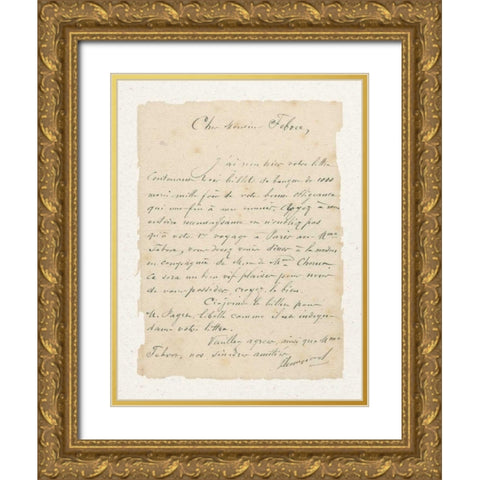 Cher Monsieur Febvre,
J'ai reçu hier votre lettre
contenant trois billets de banque de 1000
merci mille fois de votre bonne obligeance
qui me fin à me ruiner. Croyez à ma
entière reconnaissance et n'oubliez pas
qu'à votre 1er voyage à Paris avec Mme
Febvre, vous devez venir dîner à la maison
en compagnie de Mr et de Mme
Ce sera un bien vif plaisir pour nous
de vous posséder, croyez le bien.
Ci-joint le billet pour
Mr Pages, libellé comme il est indiqué
dans votre lettre.
Veuillez agréer, ainsi que Mme
Febvre, nos sincères amitiés